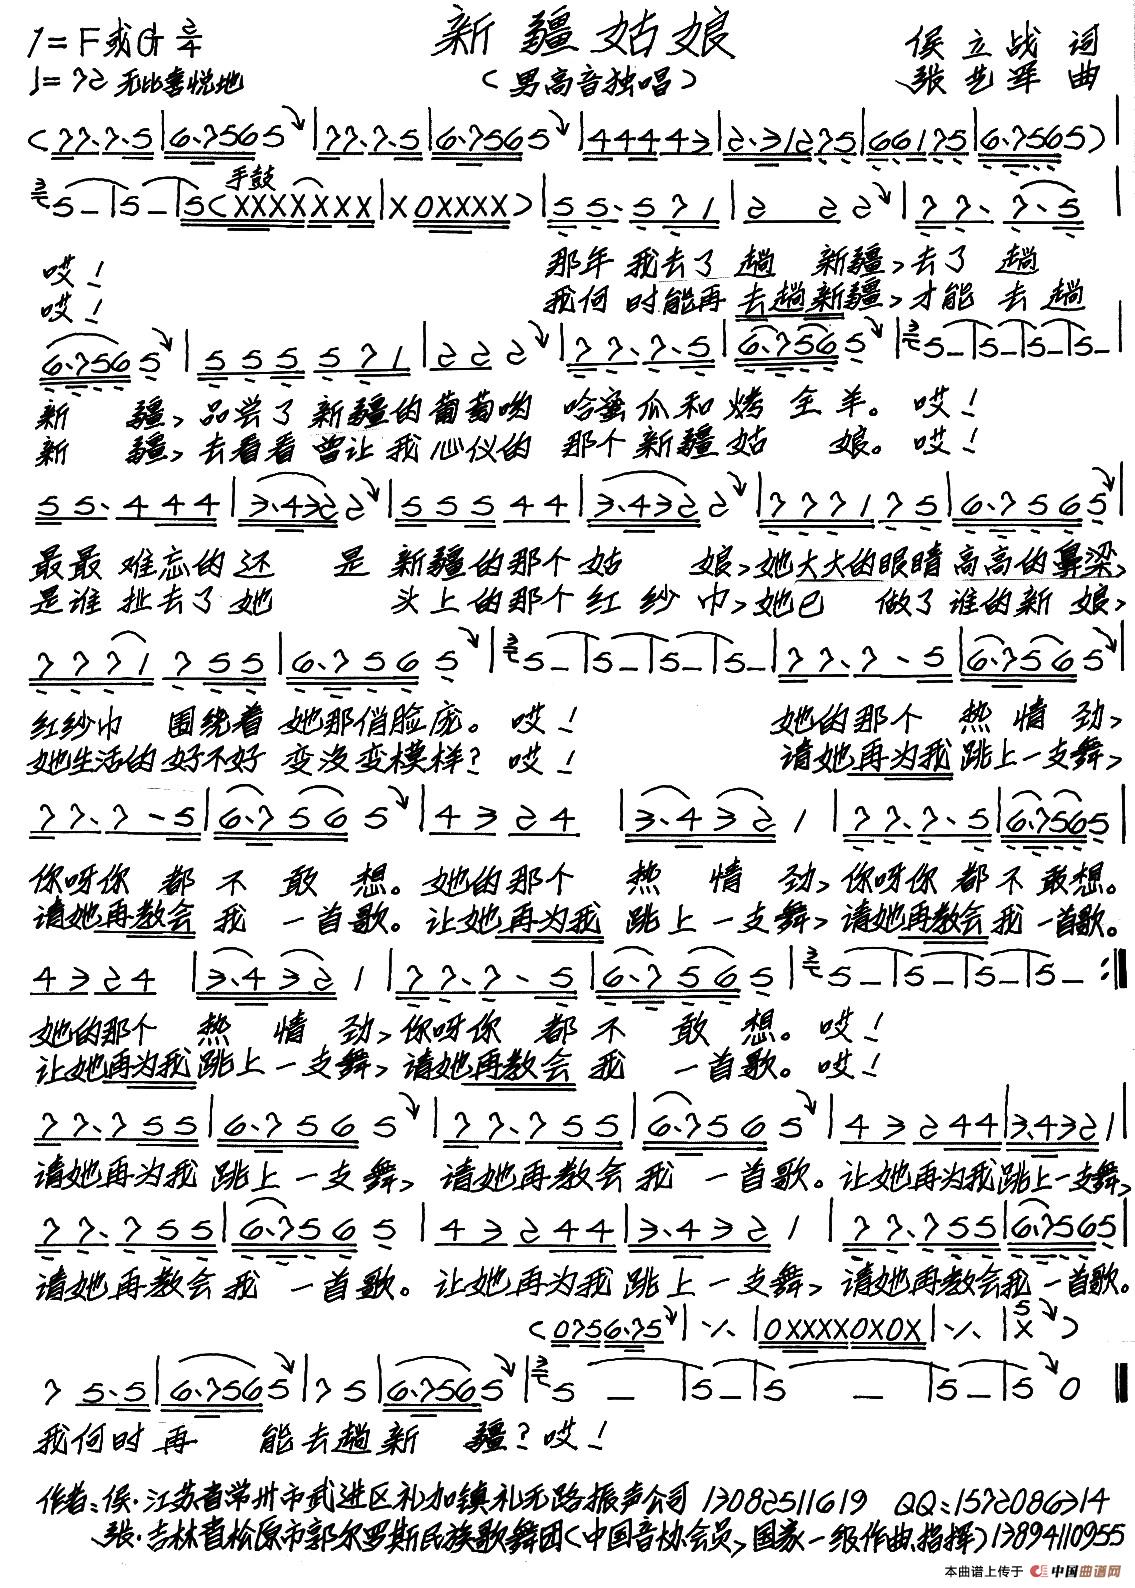 新疆姑娘
1=F或G 2/4
♩=72 无比喜悦地
(男高音独唱)
侯立战 词
张艺军 曲
(77.7.5|6.7565|77.7.5|6.7565|44443|2.31275|66175|6.7565)
手鼓
5-|5-|5(XXXXXXX|X0XXXX)|55.571|2 22|77.7.5
哎! 那年我去了趟 新疆,去了 趟
哎! 我何时能再去趟新疆,才能 去趟
6.7565|555571|222|77.7.5|6.7565|5-|5-|5-|5-|
新 疆,品尝了新疆的葡萄哟 哈蜜瓜和烤全羊。哎!
新 疆,去看看曾让我心仪的 那个新疆姑 娘。哎!
55.444|3.4322|55544|3.4322|777175|6.7565|
最最难忘的还 是 新疆的那个姑 娘,她大大的眼睛高高的鼻梁,
是谁扯去了她 头上的那个红纱巾,她已 做了谁的新娘,
7771755|6.7565|5-|5-|5-|5-|77.7.5|6.7565|
红纱巾 围绕着她那俏脸庞。哎! 她的那个 热情劲,
她生活的好不好 变没变模样?哎! 请她再为我跳上一支舞,
77.7.5|6.7565|4324|3.4321|77.7.5|6.7565|
你呀你 都不敢想。她的那个 热情劲,你呀你都不敢想。
请她再教会我 一首歌。让她再为我跳上一支舞,请她再教会我一首歌。
4324|3.4321|77.7.5|6.7565|5-|5-|5-|5-:‖
她的那个 热情劲,你呀你 都不敢想。哎!
让她再为我跳上一支舞,请她再教会我 一首歌。哎!
77.755|6.7565|77.755|6.7565|43244|3.4321|
请她再为我跳上一支舞,请她再教会我 一首歌。让她再为我跳上一支舞,
77.755|6.7565|43244|3.4321|77.755|6.7565|
请她再教会我 一首歌。让她再为我跳上一支舞,请她再教会我一首歌。
(0756.75|·/.|0XXXX0X0X|·/.|X)
7 5.5|6.7565|75|6.7565|5 -|5-|5 -|5-|50‖
我何时再 能去趟新 疆?哎!
作者:侯·江苏省常州市武进区礼加镇礼毛路振声公司 13082511619 QQ:1572086314
张·吉林省松原市郭尔罗斯民族歌舞团(中国音协会员,国家一级作曲、指挥)13894110955
本曲谱上传于 中国曲谱网